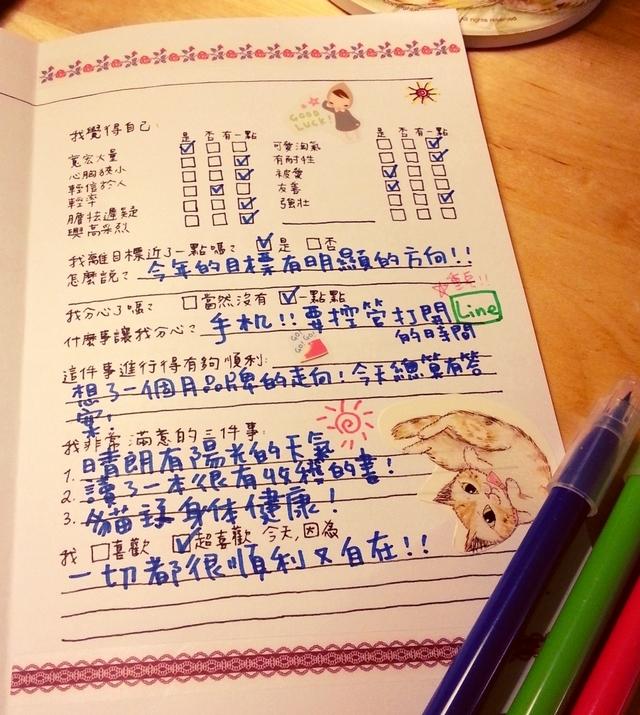 All rights reserved
GOOD LUCK!
我覺得自己: 是 否 有一點
寬宏大量
心胸狹小
輕信於人
輕率
膽怯遲疑
興高采烈
是 否 有一點
可愛淘氣
有耐性
被愛
友善
強壯
我離目標近了一點嗎? 是 否
怎麼說? 今年的目標有明顯的方向!!
我分心了嗎? 當然沒有 一點點
什麼事讓我分心? 手机!! 要控管打開 Line
的時間
GO! GO! GO!
這件事進行得有夠順利:
想了一個月品牌的走向!今天總算有答
案!
我非常滿意的三件事:
1. 晴朗有陽光的天氣
2. 讀了一本很有收穫的書!
3. 貓咪身体健康!
我 喜歡 超喜歡 今天,因為
一切都很順利又自在!!